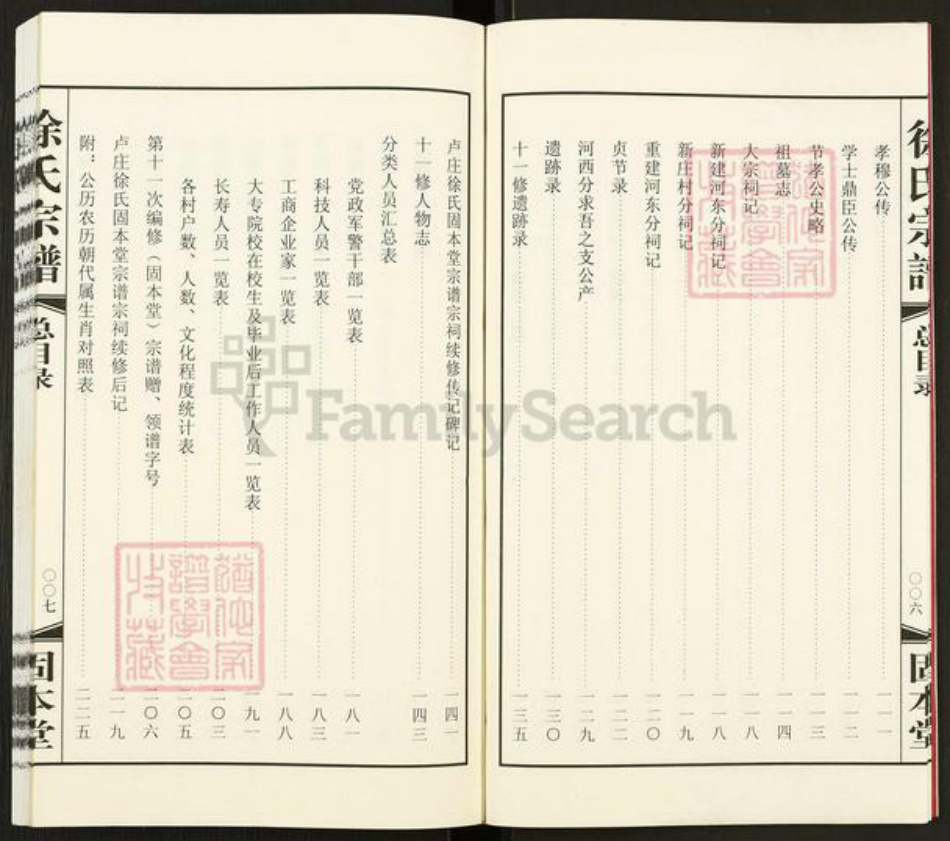 徐氏宗谱
总目录
〇〇六
固本堂
孝穆公传 一一一
学士鼎臣公传 一一二
节孝公史略 一一三
祖墓志 一一四
大宗祠记 一一八
新建河东分祠记 一一八
新庄村分祠记 一一九
重建河东分祠记 一二〇
贞节录 一二二
河西分求吾之支公产 一二九
遗跡录 一三〇
十一修遗跡录 一三五
卢庄徐氏固本堂宗谱宗祠续修传记碑记 一四一
十一修人物志 一四三
分类人员汇总表
党政军警干部一览表 一八一
科技人员一览表 一八三
工商企业家一览表 一八八
大专院校在校生及毕业后工作人员一览表 一九一
长寿人员一览表 二〇三
各村户数、人数、文化程度统计表 二〇五
第十一次编修（固本堂）宗谱赠、领谱字号 二〇六
卢庄徐氏固本堂宗谱宗祠续修后记 二一九
附：公历农历朝代属生肖对照表 二二五
徐氏宗谱
总目录
〇〇七
固本堂
FamilySearch